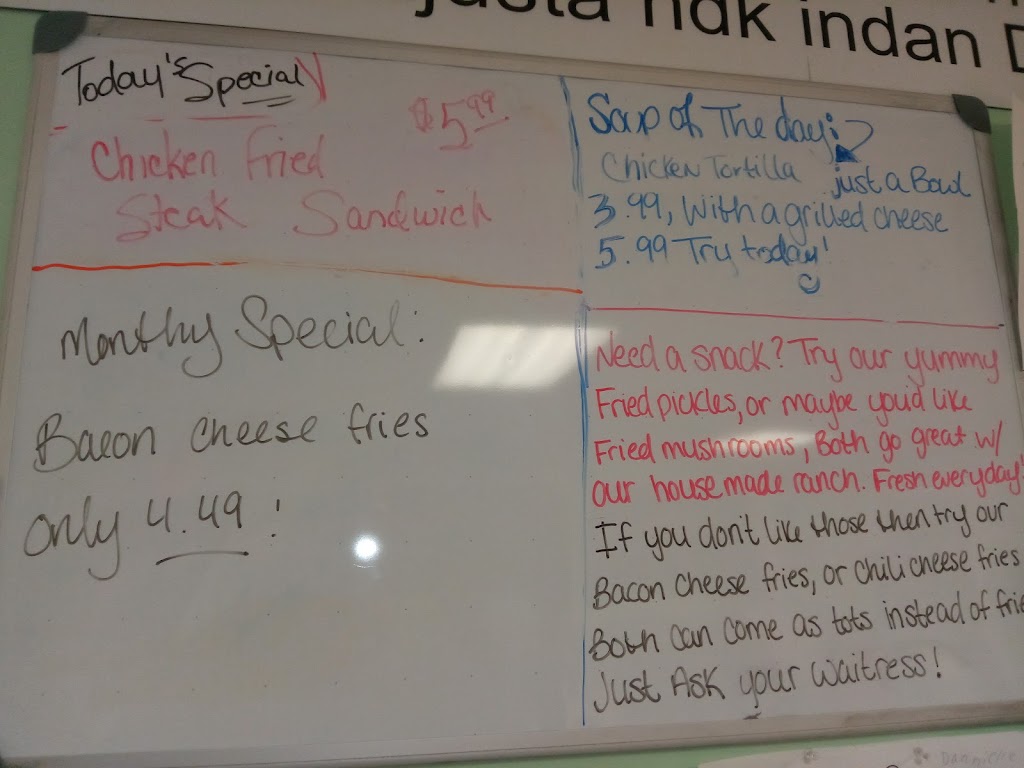 justa hdk indan D
Today's Special
$5.99
Chicken Fried
Steak Sandwich
Monthy Special:
Bacon cheese fries
only 4.49!
Soup of The day:
Chicken Tortilla just a Bowl
3.99, With a grilled cheese
5.99 Try today!
Need a snack? Try our yummy
Fried pickles, or maybe you'd like
Fried mushrooms, Both go great w/
our house made ranch. Fresh everyday!
If you don't like those then try our
Bacon cheese fries, or chili cheese fries
Both can come as tots instead of frie
Just Ask your waitress!